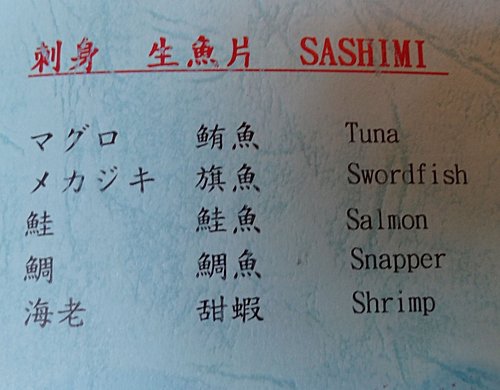 刺身 生魚片 SASHIMI
マグロ 鮪魚 Tuna
メカジキ 旗魚 Swordfish
鮭 鮭魚 Salmon
鯛 鯛魚 Snapper
海老 甜蝦 Shrimp